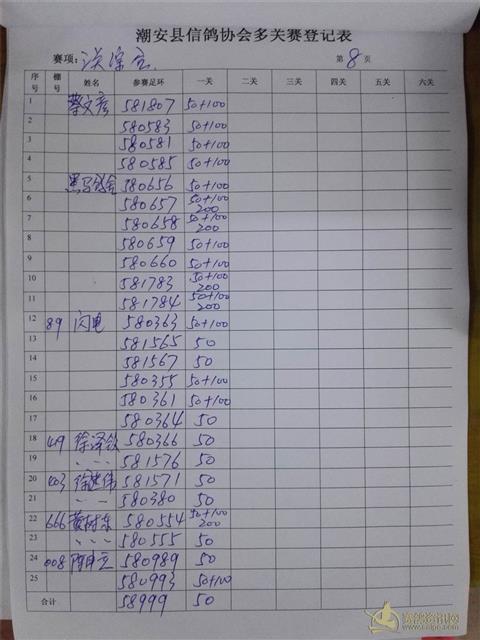 潮安县信鸽协会多关赛登记表
赛项: 第8页
序号 棚号 姓名 参赛足环 一关 二关 三关 四关 五关 六关
1 蔡文彦 581807 50+100
2 580583 50+100
3 580581 50+100
4 580585 50+100
5 黑马 580656 50+100
6 580657 50+100 200
7 580658 50+100 200
8 580659 50+100
9 580660 50+100
10 581783 50+100 200
11 581784 50+100 200
12 89 闪电 580363 50+100
13 581565 50
14 581567 50
15 580355 50+100
16 580361 50+100
17 580364 50
18 徐泽钦 580366 50
19 〃 〃 581576 50
20 403 581571 50
21 〃 〃 580380 50
22 666 黄树东 580554 50+100 200
23 〃 〃 〃 580555 50
24 008 580989 50
25 580993 50+100
合计 58999 50